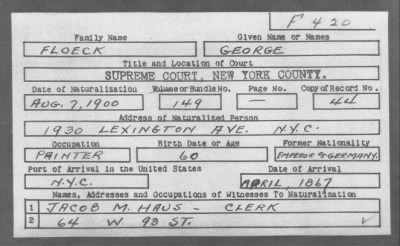 F 420
Family Name Given Name or Names
FLOECK GEORGE
Title and Location of Court
SUPREME COURT, NEW YORK COUNTY.
Date of Naturalization Volume or Bundle No. Page No. Copy of Record No.
AUG. 7, 1900 149 — 44
Address of Naturalized Person
1930 LEXINGTON AVE. N.Y.C.
Occupation Birth Date or Age Former Nationality
PAINTER 60 EMPEROR OF GERMANY.
Port of Arrival in the United States Date of Arrival
N.Y.C. APRIL, 1867
Names, Addresses and Occupations of Witnesses To Naturalization
1 JACOB M. HAUS - CLERK
2 64 W. 93 ST.